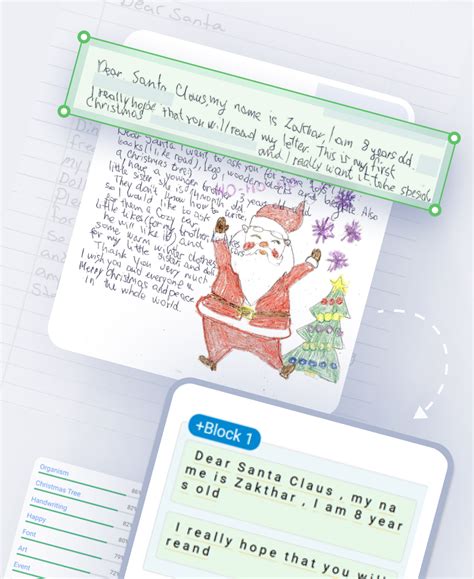 Dear Santa
Dear Santa Claus, my name is Zakthar, I am 8 years old.
I really hope that you will read my letter. This is my first
Christmas and I really want it to be
Dear Santa I want to ask you for some toys
books (I like to read), lego, wooden blocks and Also
a Christmas tree!
I have a younger brother, 3 years old and
little sister,
they don't know how to write,
so I would like to ask
for them a cozy
he will like it) and
some warm winter clothes
for my little sister and doll.
Thank you very much
I wish you and everyone a
Merry Christmas and peace
in the whole world.
HO-HO
+Block 1
Dear Santa Claus , my na
me is Zakthar , I am 8 year
s old
I really hope that you will
reand
Organism
86%
Christmas Tree
82%
Handwriting
82%
Happy
80%
Font
Art
77%
Event